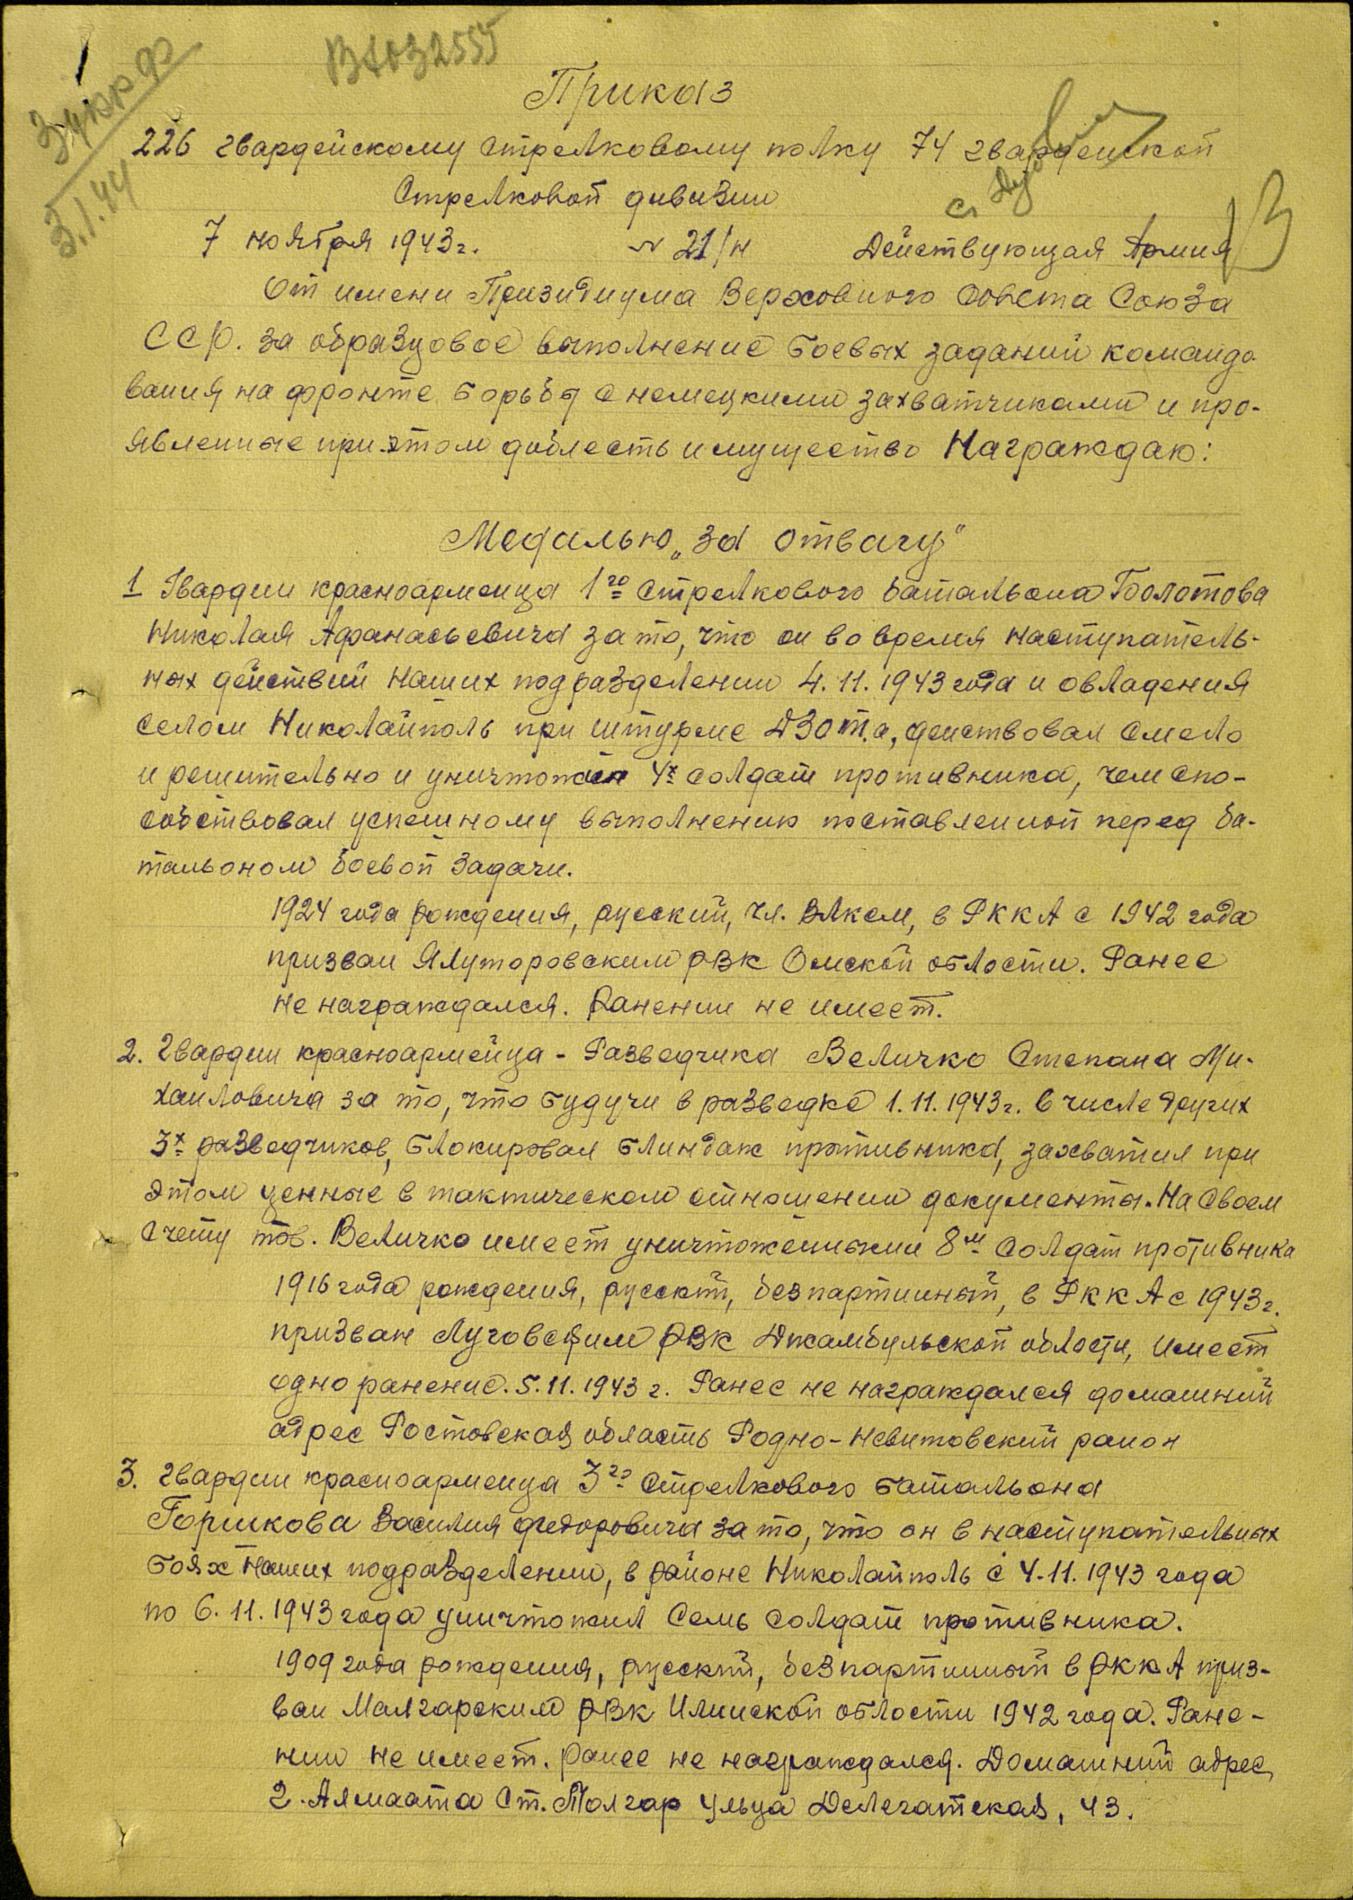 Приказ
226 гвардейскому стрелковому полку 74 гвардейской
Стрелковой дивизии
7 ноября 1943г. № 21/н Действующая Армия
От имени Президиума Верховного Совета Союза
ССР. за образцовое выполнение боевых заданий командо
вания на фронте борьбы с немецкими захватчиками и про-
явленные при этом доблесть и мущество Награждаю:
Медалью „За отвагу"
1 Гвардии красноармейца 1го Стрелкового батальона Болотова
Николая Афанасьевича за то, что он во время наступатель-
ных действий наших подразделений 4.11.1943 года и овладения
селом Николайполь при штурме ДЗОТ,а, действовал смело
и решительно и уничтожил 4х солдат противника, чем спо-
собствовал успешному выполнению поставленной перед ба-
тальоном боевой задачи.
1924 года рождения, русский, чл. ВЛКСМ, в РККА с 1942 года
призван Ялуторовским РВК Омской области. Ранее
не награждался. Ранений не имеет.
2. Гвардии красноармейца - Разведчика Величко Степана Ми-
хайловича за то, что будучи в разведке 1.11.1943г. в числе других
3х разведчиков, блокировал блиндаж противника, захватил при
этом ценные в тактическом отношении документы. На своем
счету тов. Величко имеет уничтоженными 8м солдат противника
1916 года рождения, русский, безпартийный, в РККА с 1943г.
призван Луговским РВК Джамбульской области, имеет
одно ранение. 5.11.1943 г. Ранее не награждался домашний
адрес Ростовская область Родно-Невитовский район
3. Гвардии красноармейца 3го Стрелкового батальона
Горшкова Василия Федоровича за то, что он в наступательных
боях наших подразделений, в районе Николайполь с 4.11.1943 года
по 6.11.1943 года уничтожил семь солдат противника.
1909 года рождения, русский, безпартийный в РККА приз-
ван РВК области 1942 года. Ране-
ний не имеет. Ранее не награждался. Домашний адрес
г. Алмаата Ст. Талгар улица Делегатская, 43.